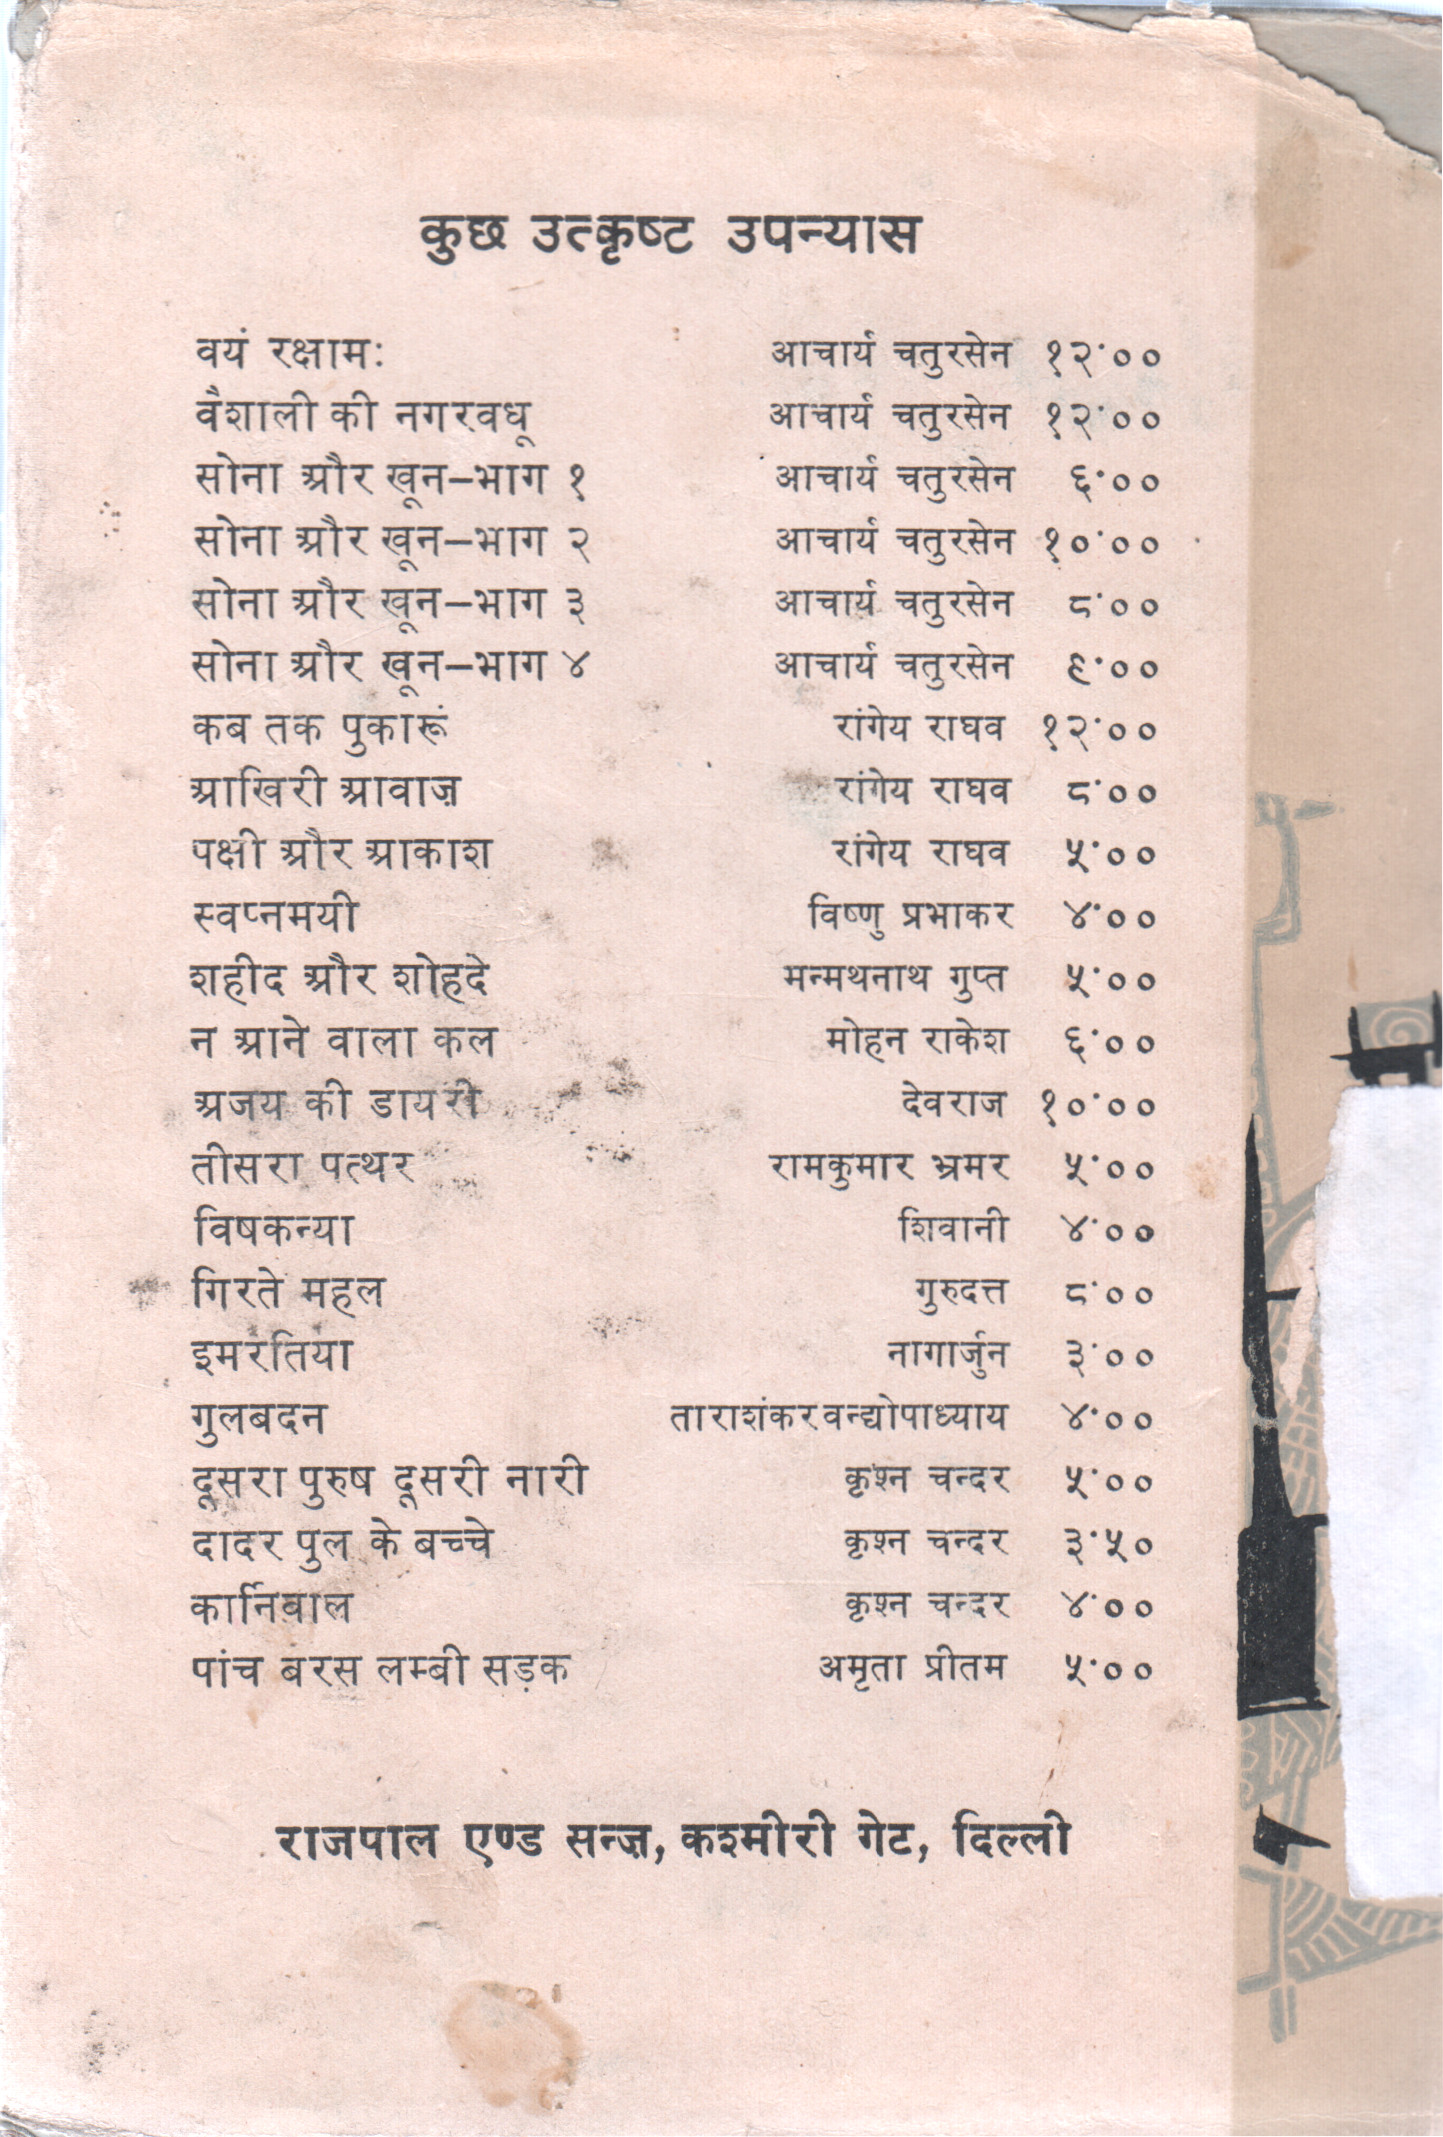 कुछ उत्कृष्ट उपन्यास
वयं रक्षामः आचार्य चतुरसेन १२·००
वैशाली की नगरवधू आचार्य चतुरसेन १२·००
सोना और खून–भाग १ आचार्य चतुरसेन ६·००
सोना और खून–भाग २ आचार्य चतुरसेन १०·००
सोना और खून–भाग ३ आचार्य चतुरसेन ८·००
सोना और खून–भाग ४ आचार्य चतुरसेन ९·००
कब तक पुकारूं रांगेय राघव १२·००
आखिरी आवाज़ रांगेय राघव ८·००
पक्षी और आकाश रांगेय राघव ५·००
स्वप्नमयी विष्णु प्रभाकर ४·००
शहीद और शोहदे मन्मथनाथ गुप्त ५·००
न आने वाला कल मोहन राकेश ६·००
अजय की डायरी देवराज १०·००
तीसरा पत्थर रामकुमार भ्रमर ५·००
विषकन्या शिवानी ४·००
गिरते महल गुरुदत्त ८·००
इमरतिया नागार्जुन ३·००
गुलबदन ताराशंकर वन्द्योपाध्याय ४·००
दूसरा पुरुष दूसरी नारी कृश्न चन्दर ५·००
दादर पुल के बच्चे कृश्न चन्दर ३·५०
कार्निवाल कृश्न चन्दर ४·००
पांच बरस लम्बी सड़क अमृता प्रीतम ५·००
राजपाल एण्ड सन्ज़, कश्मीरी गेट, दिल्ली